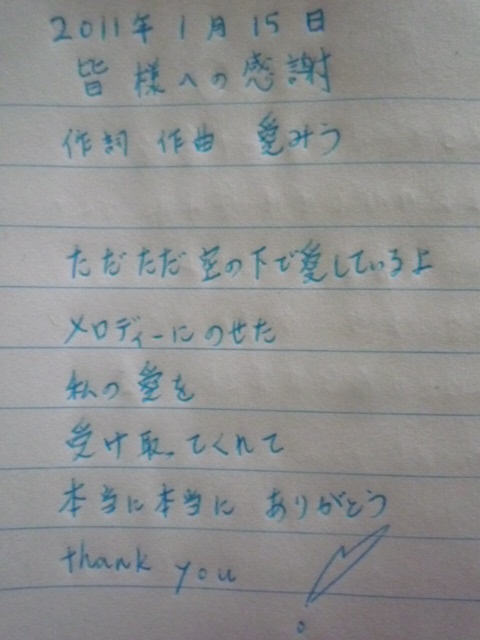 2011年1月15日
皆様への感謝
作詞 作曲 愛みう
ただただ空の下で愛しているよ
メロディーにのせた
私の愛を
受け取ってくれて
本当に本当に ありがとう
thank you!